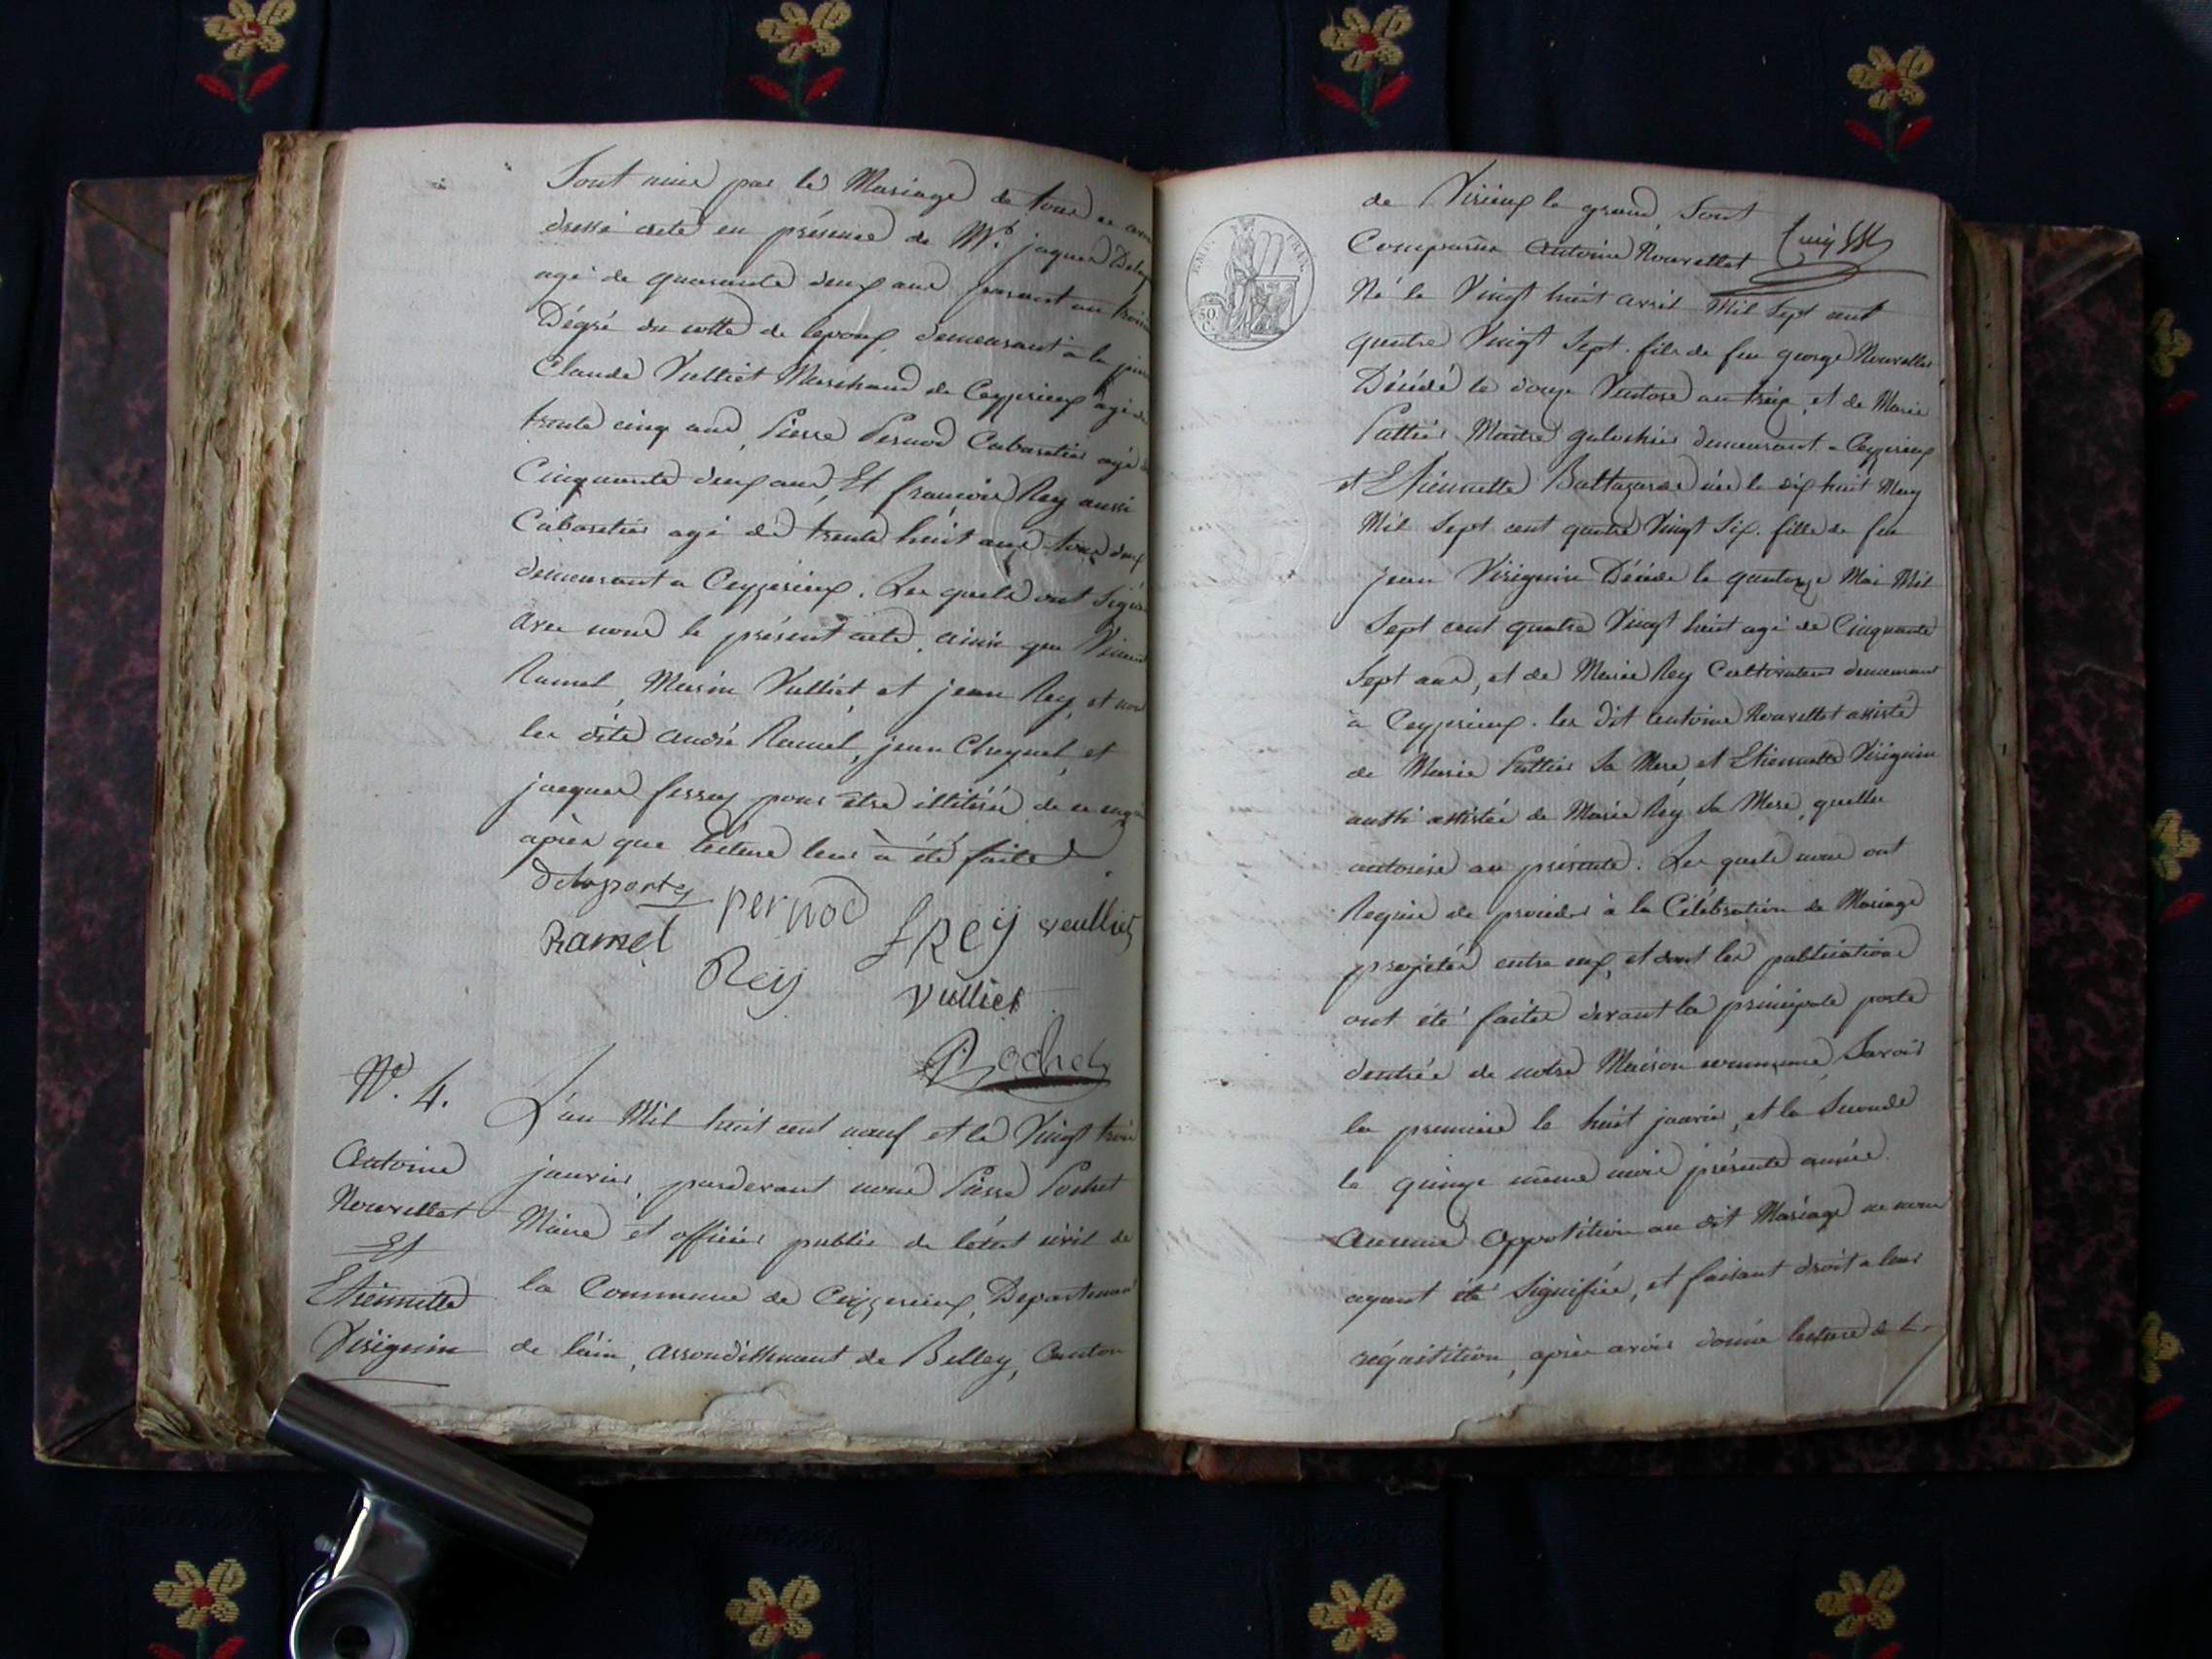 Sont unis par le Mariage de tous ce avons
dressé acte en présence de Mr. jaques
agé de quarante deux ans parent au
Dégré du cotté de lepoux demeurant à la
Claude Vulliet Marchand de Ceyzerieux agé de
trente cinq ans, Pierre Pernod Cabaretier agé
Cinquante deux ans, Et françois Rey aussi
Cabaretier agé de trente huit ans tous deux
demeurant a Ceyzerieux. Les quels ont signé
avec nous le présent acte, ainsi que Vincent
Ramel, Marin Vulliet, et jean Rey, et non
les dits andré Ramel, jean Cheynel, et
jacques pour être illitérés de ce
après que lecture leur à été faite
delaporte pernod fRey veulliet
Ramel Rey vulliet
Pochet
N°. 4.
Antoine
Nouvellet
Et
Etiennette
Virignin
L'an Mil huit cent neuf et le Vingt trois
janvier, pardevant nous Pierre Pochet
Maire et officier public de letat civil de
la Commune de Ceyzerieux, Departement
de lain, arrondissement de Belley, Canton
EMP. FRAN.
50 C.
de Virieux le grand, Sont
Comparus Antoine Nouvellet
Né le Vingt huit avril Mil Sept cent
quatre Vingt Sept. fils de feu george Nouvellet
Décédé le douze Ventose an treize, et de Marie
Pattier Maitre galochier demeurant a Ceyzerieux
et Etiennette Baltazarde née le dix huit May
Mil Sept cent quatre Vingt Six. fille de feu
jean Virignin Décédé le quatorze Mai Mil
Sept cent quatre Vingt huit agé de Cinquante
Sept ans, et de Marie Rey Cultivateurs demeurant
à Ceyzerieux. les dit antoine Nouvellet assisté
de Marie Pattier Sa Mere, et Etiennette Virignin
aussi assistée de Marie Rey Sa Mere, quelles
autorise au présente. Les quels nous ont
Requis de proceder à la Célébration de Mariage
projetée entre eux, et dont les publications
ont été faites devant la principale porte
dentrée de notre Maison commune, Savoir
la premiere le huit janvier, et la Seconde
le quinze même mois présente année.
Aucune Opposition au dit Mariage ne nous
ayant été Signifiée, et faisant droit a leur
réquisition, après avoir donné lecture de